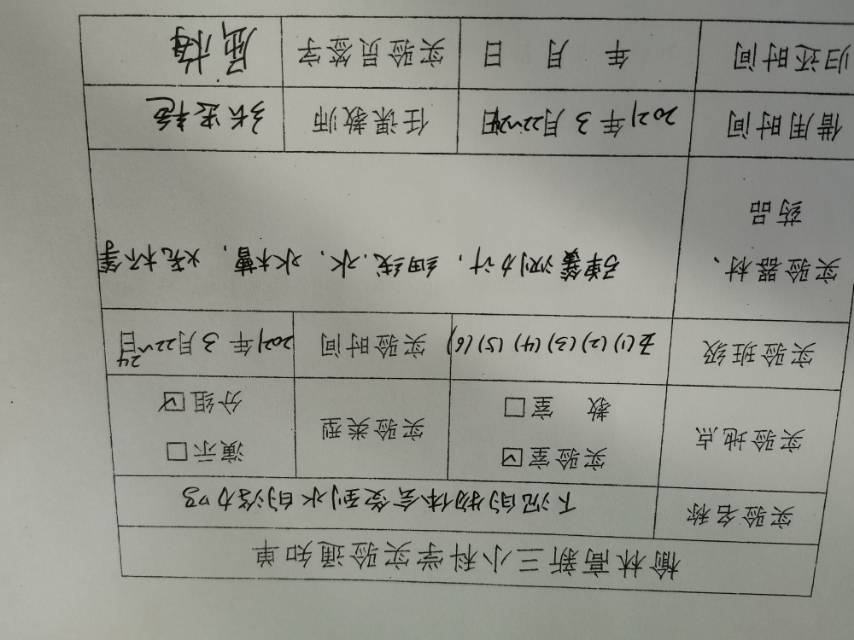 榆林高新三小科学实验通知单
实验名称 下沉的物体会受到水的浮力吗
实验地点 实验室☑ 教 室□ 实验类型 演示□ 分组☑
实验班级 五(1)(2)(3)(4)(5)(6) 实验时间 2021年3月22~24日
实验器材、药品 弹簧测力计，细线、水、水槽，烧杯等
借用时间 2021年3月22~24日 任课教师
归还时间 年 月 日 实验员签字 屈梅